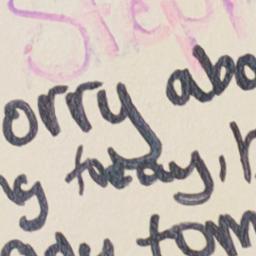 Step
orry abo
ng today, h
ody tom